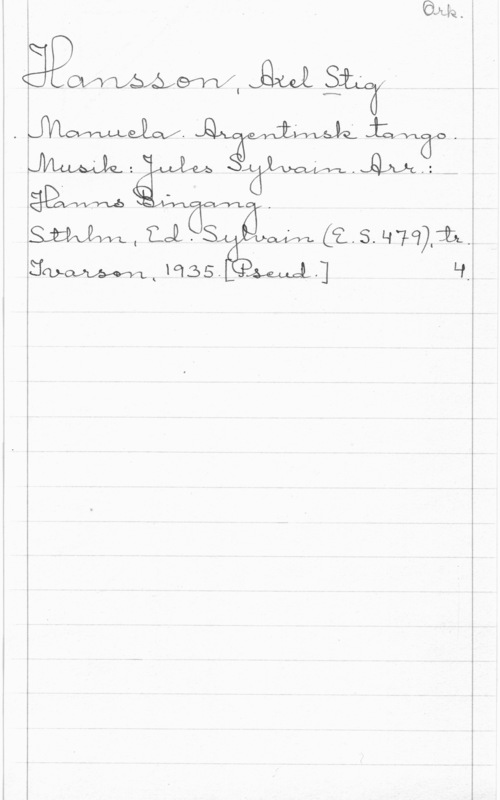 Ork.
Hansson, Axel Stig
Manuela. Argentinsk tango.
Musik: Jules Sylvain. Arr.:
Hanns Bingang.
Sthlm, Ed. Sylvain (E.S. 479), tr.
Ivarson, 1935. [Pseud.] 4.